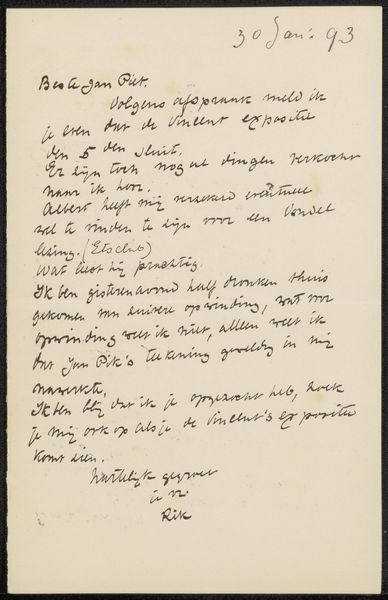 30 Jan: 93
Beste Jan Piet.
Volgens afspraak meld ik
je even dat de Vincent expositie
den 5 den sluit.
Er zijn toch nogal dingen verkocht
naar ik hoor.
Albert heeft mij verzekerd eventueel
wel te vinden te zijn voor een Vondel
lezing. (Etsclub)
Wat leest hij prachtig.
Ik ben gisterenavond half dronken thuis
gekomen van zuivere opwinding, wat voor
opwinding weet ik niet, alleen weet ik
dat Jan Pik's teekening geweldig in mij
nawerkte.
Ik ben blij dat ik je opgezocht heb, zoek
je mij ook op als je de Vincent's expositie
komt zien.
Hartelijk gegroet
je vr.
Rik